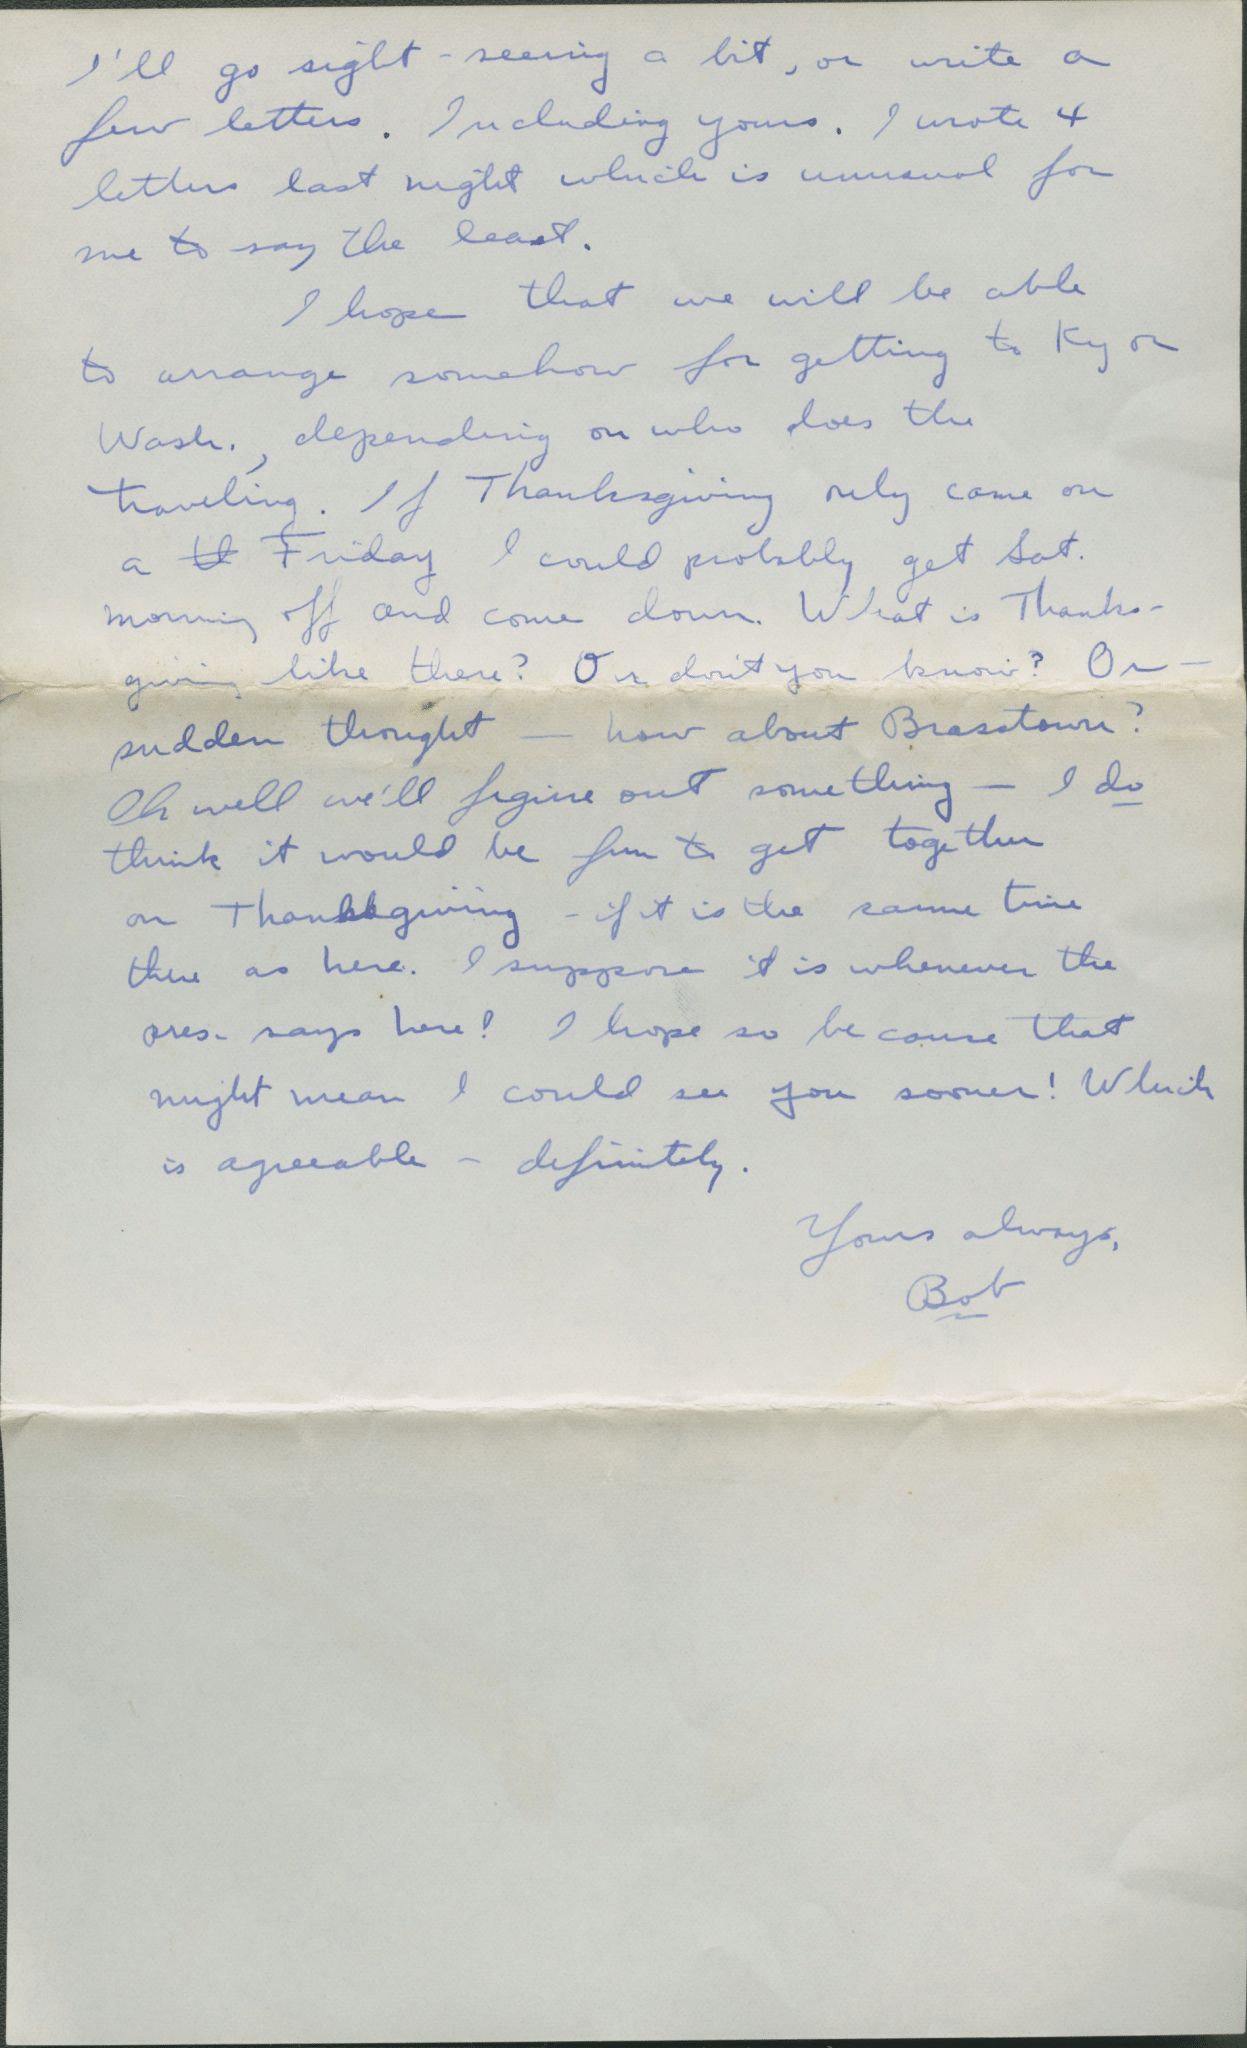 I'll go sight-seeing a bit, or write a
few letters. Including yours. I wrote 4
letters last night which is unusual for
me to say the least.
I hope that we will be able
to arrange somehow for getting to Ky or
Wash., depending on who does the
traveling. If Thanksgiving only came on
a th Friday I could probably get Sat.
morning off and come down. What is Thanks-
giving like there? Or don't you know? Or —
sudden thought — how about Brasstown?
Oh well we'll figure out something — I do
think it would be fun to get together
on Thanksgiving - if it is the same time
there as here. I suppose it is whenever the
pres. says here! I hope so because that
might mean I could see you sooner! Which
is agreeable - definitely.
Yours always,
Bob